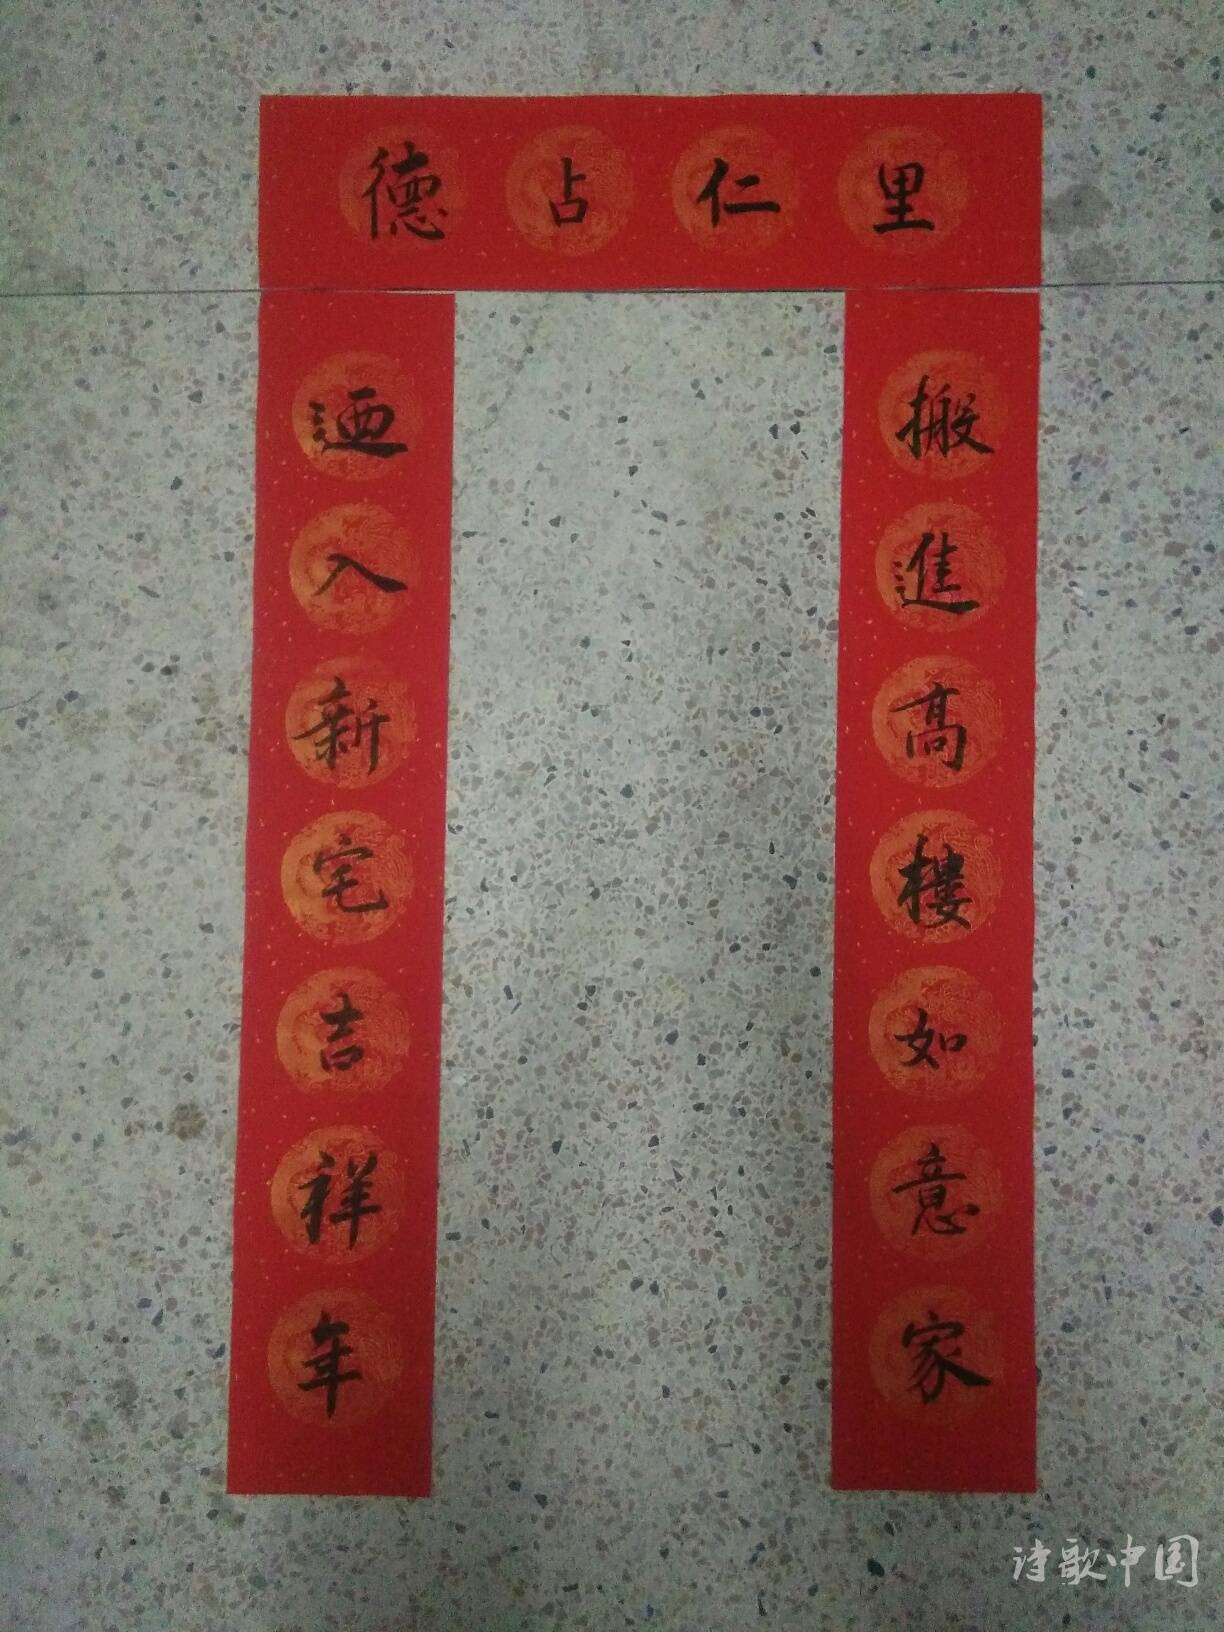 德占仁里
搬進高樓如意家
迺入新宅吉祥年
诗歌中国